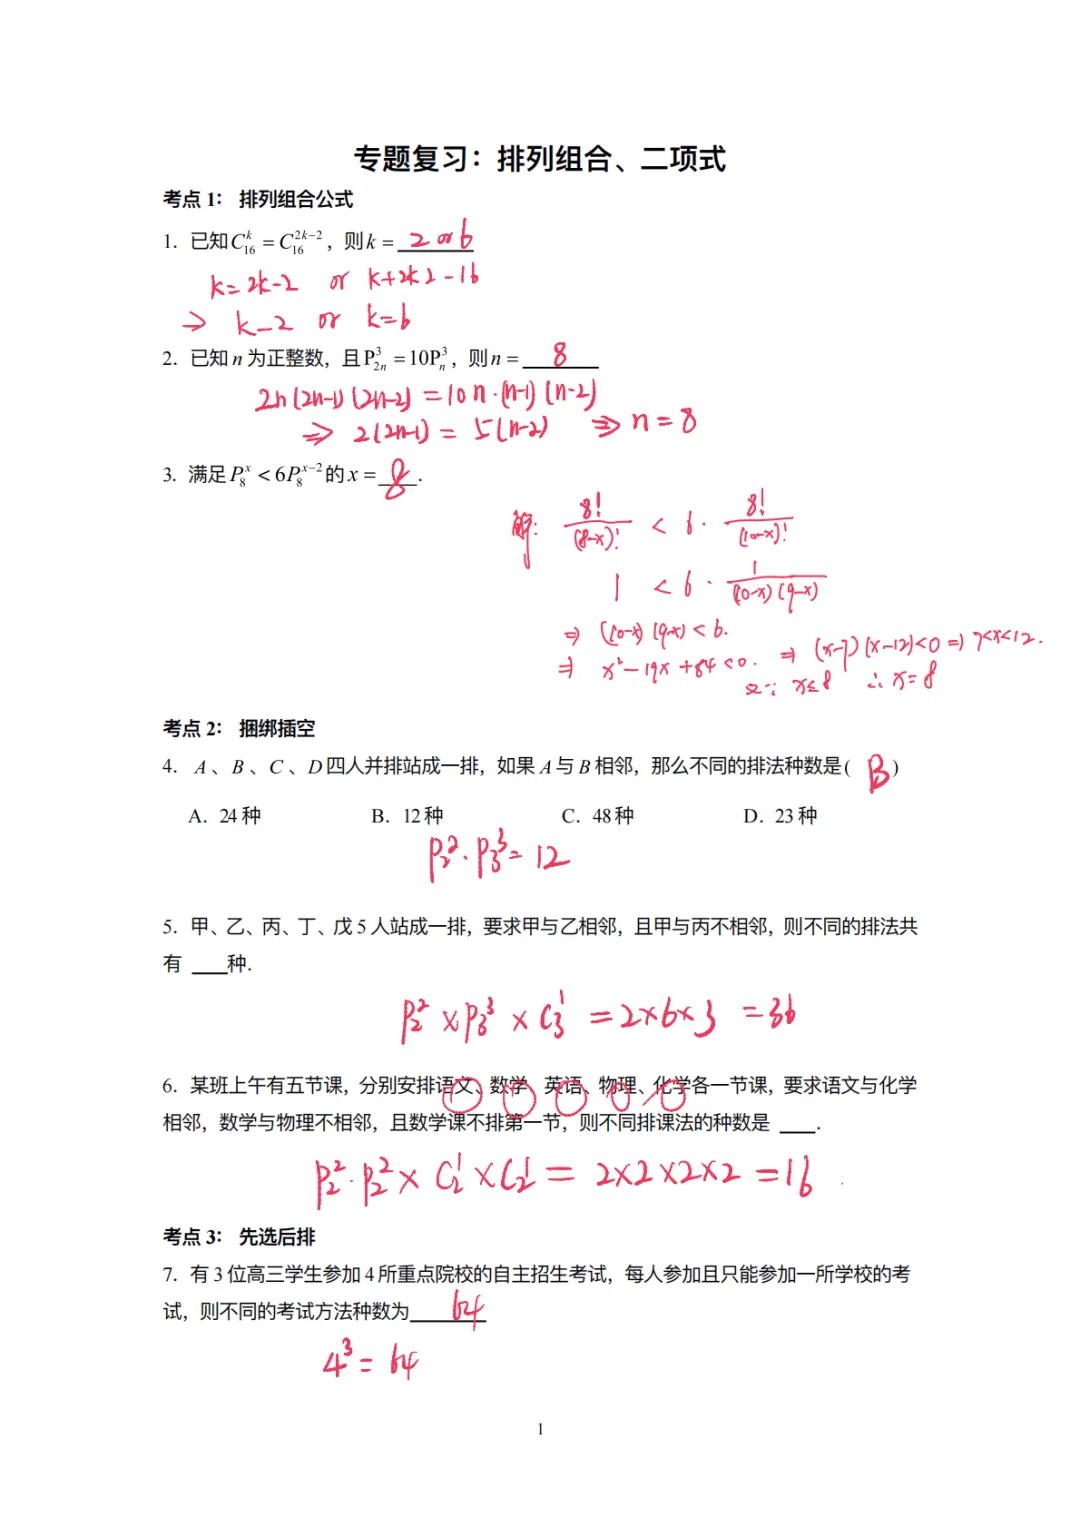 专题复习：排列组合、二项式
考点 1： 排列组合公式
1. 已知 C₁₆ᵏ = C₁₆²ᵏ⁻²，则 k = 2 or 6
k=2k-2 or k+2k-2-16
⇒ k-2 or k=6
2. 已知 n 为正整数，且 P₂ₙ³ = 10Pₙ³，则 n = 8
2n(2n-1)(2n-2) = 10n·(n-1)(n-2)
⇒ 2(2n-1) = 5(n-2) ⇒ n = 8
3. 满足 P₈ˣ < 6P₈ˣ⁻² 的 x = 8.
解: 8!/(8-x)! < 6· 8!/(10-x)!
1 < 6· 1/(10-x)(9-x)
⇒ (10-x)(9-x) < 6.
⇒ x²-19x+84<0. ⇒ (x-7)(x-12)<0 ⇒ 7<x<12.
又∵ x≤8 ∴ x=8
考点 2： 捆绑插空
4. A、B、C、D 四人并排站成一排，如果 A 与 B 相邻，那么不同的排法种数是( B )
A. 24 种 B. 12 种 C. 48 种 D. 23 种
P₂²·P₃³=12
5. 甲、乙、丙、丁、戊 5 人站成一排，要求甲与乙相邻，且甲与丙不相邻，则不同的排法共
有 ____种.
P₂²×P₃³×C₃¹ =2×6×3 =36
6. 某班上午有五节课，分别安排语文、数学、英语、物理、化学各一节课，要求语文与化学
相邻，数学与物理不相邻，且数学课不排第一节，则不同排课法的种数是 ____.
P₂²·P₂²×C₂¹×C₂¹= 2×2×2×2 =16
考点 3： 先选后排
7. 有 3 位高三学生参加 4 所重点院校的自主招生考试，每人参加且只能参加一所学校的考
试，则不同的考试方法种数为 64
4³= 64
1